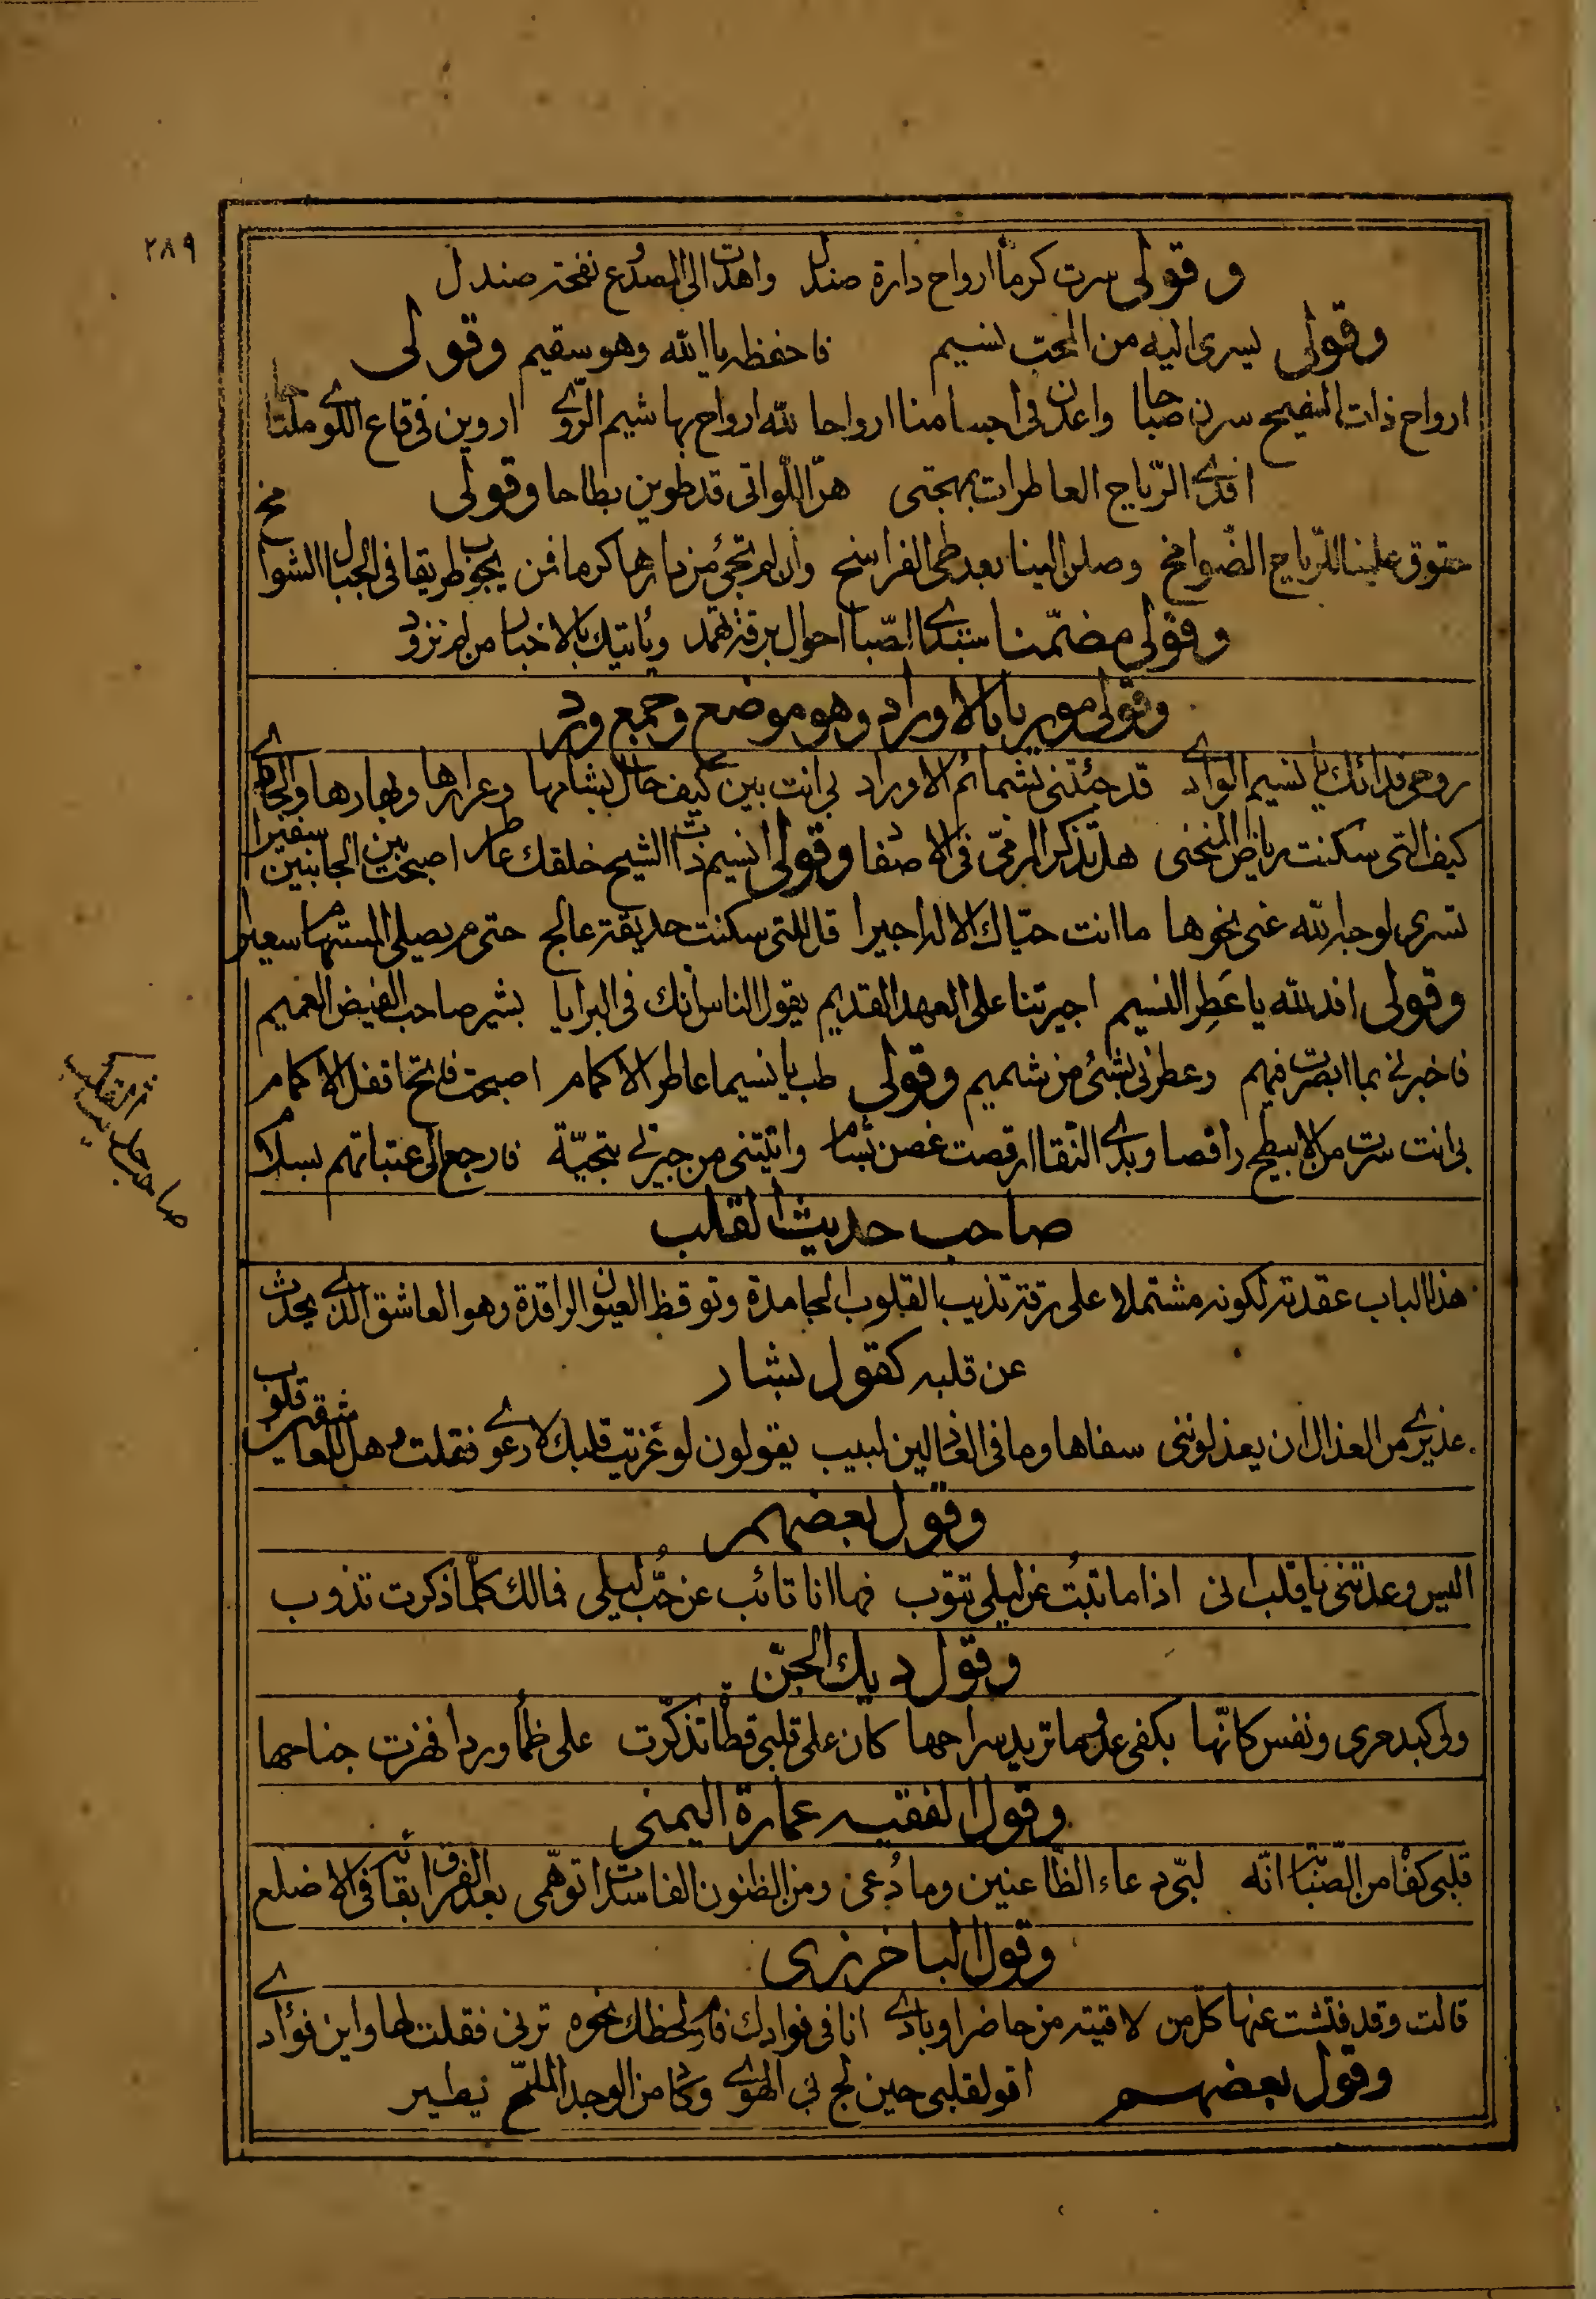 ٢٨٩
وقولى سرت كرماً ارواح دارة صندل واهدت الى المصدوع نفحة صندل
وقولى يسرى اليه من المحب نسيم فاحفظه يا الله وهو سقيم وقولى
ارواح ذات الشيح سرن صباحا واعدن فى اجسامنا ارواحا لله ارواح بها شيم الروّے اروين فى قاع اللوے ملتاحا
افدے الرّياح العاطرات بمهجتى هنّ اللّواتى قد طوين بطاحا وقولى
حقوق علينا للرّياح الضّوامخ وصلن الينا بعد طى الفراسخ وان لم تجئ من دارها كرما فمن يجوب طريقا فى الجبال الشوامخ
وقولى مضمّنا ستبدے الصّبا احوال برقة ثهمد ويأتيك بالاخبار من لم تزود
وقولى موريا بالاوراد وهو موضع وجمع ورد
روحى فدائك يا نسيم الوادے قد جئتنى بشمائم الاوراد بى انت بين كيف حال بشامها وعرارها وبهارها والجادے
كيف التى سكنت رياض المنحنى هل تذكر المرمىّ فى الاصفاد وقولى انسيم ذات الشيح خلقك عاطر اصبحت بين الجانبين سفيرا
تسرى لوجه الله غنى نحوها ما انت حيّاك الاله اجيرا قل للتى سكنت حديقة عالج حتى م يصلى المستهام سعيرا
وقولى افد لله يا عَطِر النسيم اجيرتنا على العهد القديم يقول الناس انك فى البرايا بشير صاحب الفيض العميم
فاخبرنى بما ابصرت فيهم وعطرنى بشئ من شميم وقولى طب يا نسيما عاطر الاكمام اصبحت فاتحا قفل الاكمام
بى انت سرت من الابيطح راقصا وبذے النّقا ارقصت غصن بشام واتيتنى من جيرتى بتحيّة فارجع الى عتباتهم بسلام
صاحب حديث القلب
صاحب حديث القلب
هذا الباب عقدته لكونه مشتملا على رقة تذيب القلوب الجامدة وتوقظ العيون الراقدة وهو العاشق الذے يحدث
عن قلبه كقول بشار
عذيرے من العذال ان يعذلوننى سفاها وما فى العاذلين لبيب يقولون لو عزيت قلبك لارعوے فقلت وهل للعاشقين قلوب
وقول بعضهم
اليس وعدتنى يا قلب انى اذا ما تبتُ عن ليلى تتوب فها انا تائب عن حُبّ ليلى فمالك كلّما ذكرت تذوب
وقول ديك الجنّ
ولى كبد حرى ونفس كانّها بكفى عدو ما تريد سراحها كان على قلبى قطاة تذكّرت على ظمأ وردا فهزت جناحها
وقول الفقيه عمارة اليمنى
قلبى كفاه من الصّبابة انّه لبّى دعاء الظّاعنين وما دُعى ومن الظنون الفاسدات توهّمى بعد الفراق بقائه فى الاضلع
وقول الباخرزى
قالت وقد فتّشت عنها كلّ من لاقيته من حاضر او بادے انا فى فؤادك فارم لحظك نحوه ترنى فقلت لها واين فؤادے
وقول بعضهم اقول لقلبى حين لج بى الهوے وكاد من الوجد الملحّ يطير